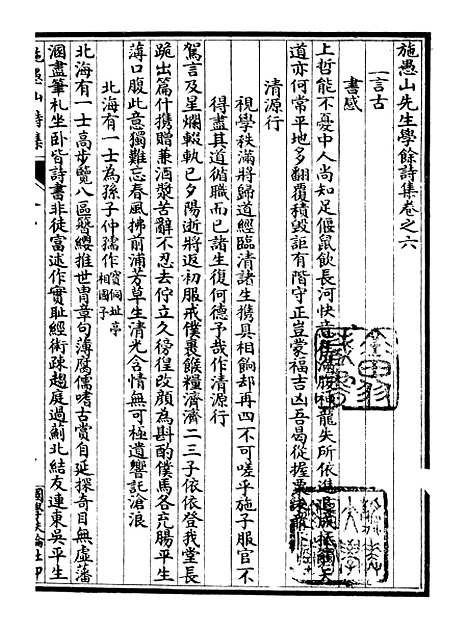 施愚山先生學餘詩集卷之六
一言古
書感
上哲能不憂中人尚知足偃鼠飲長河快意在滿腹神龍失所依進退成抵觸天
道亦何常平地多翻覆積毀詎有階守正豈蒙福吉凶吾曷從握粟
清源行
視學秩滿將歸道經臨清諸生携具相餉却再四不可嗟乎施子服官不
得盡其道循職而已諸生復何德予哉作清源行
駕言及星爛輟軌已夕陽逝將返初服戒僕裹餱糧濟濟二三子依依登我堂長
跪出篇什携贈兼酒漿苦辭不忍去佇立久徬徨改顔為斟酌僕馬各充腸平生
薄口腹此意獨難忘春風拂前浦芳草生清光含情無可極遺響託滄浪
北海有一士為孫子仲孺作寶侗相國子址亭
北海有一士高步覽八區簪纓推世胄章句薄腐儒嗜古賞自延探奇目無虛藩
溷盡筆札坐卧皆詩書非徒富述作實恥經術疎趨庭過薊北結友連東吳平生
施愚山詩集
國學扶輪社印